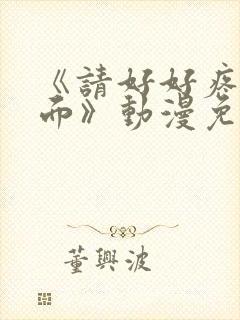 《請好好疼
而》動漫免
董興波